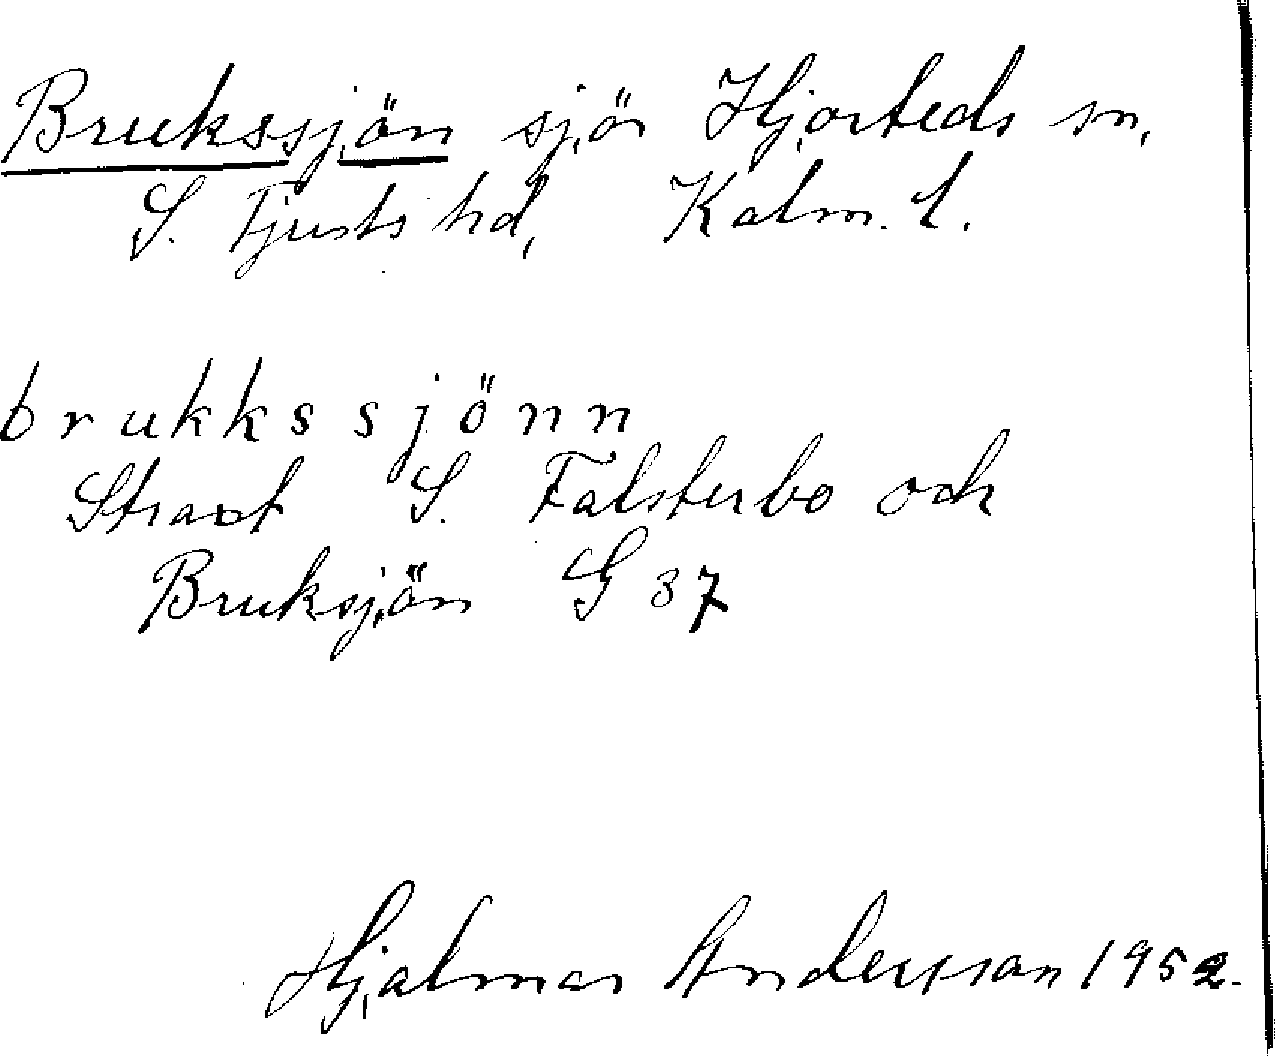 Brukssjön sjö Hjorteds sn,
S. Tjusts hd, Kalm. l.
brukkssjönn
Straxt S. Falsterbo och
Bruksjön G 37
Hjalmar Andersson 1952.